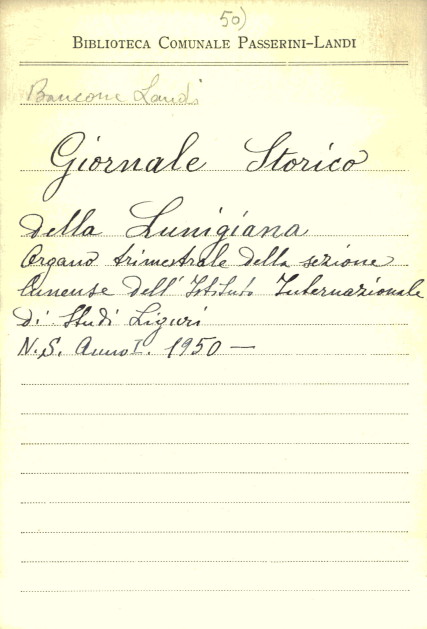 50)
BIBLIOTECA COMUNALE PASSERINI-LANDI
Bancone Landi
Giornale Storico
della Lunigiana
Organo trimestrale della sezione
lunense dell' Istituto Internazionale
di Studi Liguri
N.S. Anno I. 1950 —